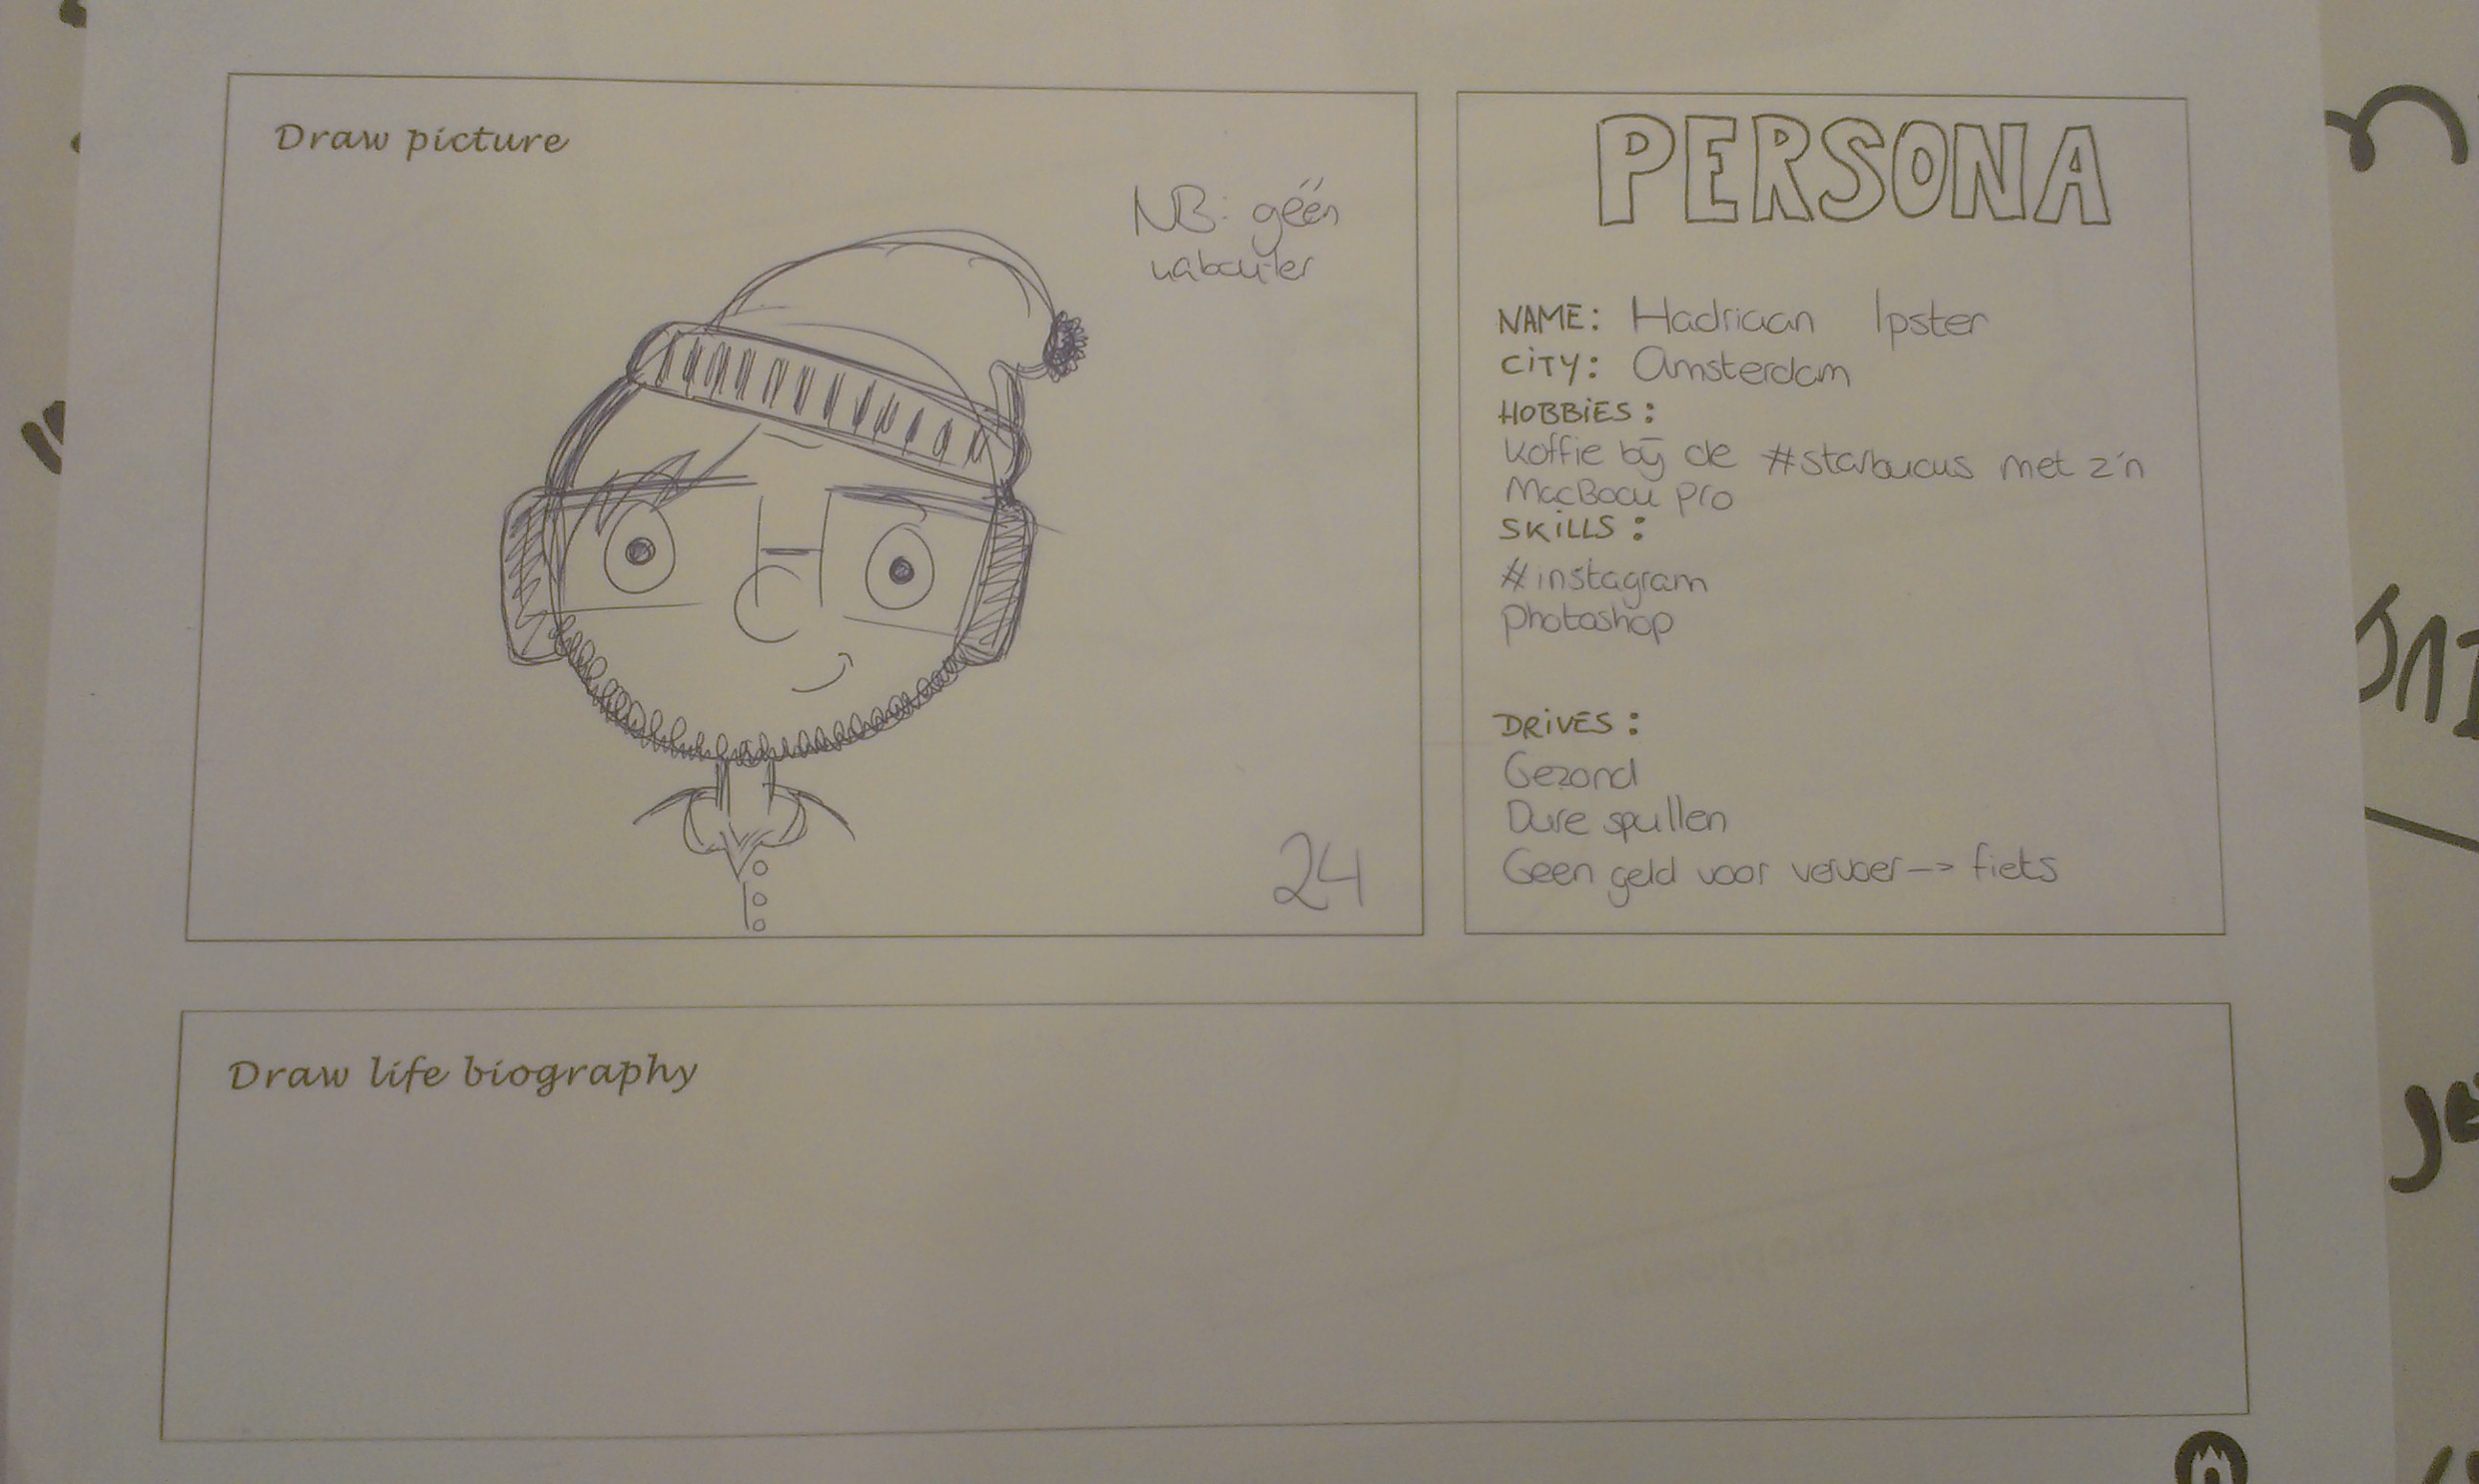 Draw picture
NB: géén
kabouter
24
PERSONA
NAME: Hadriaan Ipster
CITY: Amsterdam
HOBBIES:
Koffie bij de #starbucks met z'n
MacBook Pro
SKILLS:
#instagram
Photoshop
DRIVES:
Gezond
Dure spullen
Geen geld voor vervoer --> fiets
Draw life biography